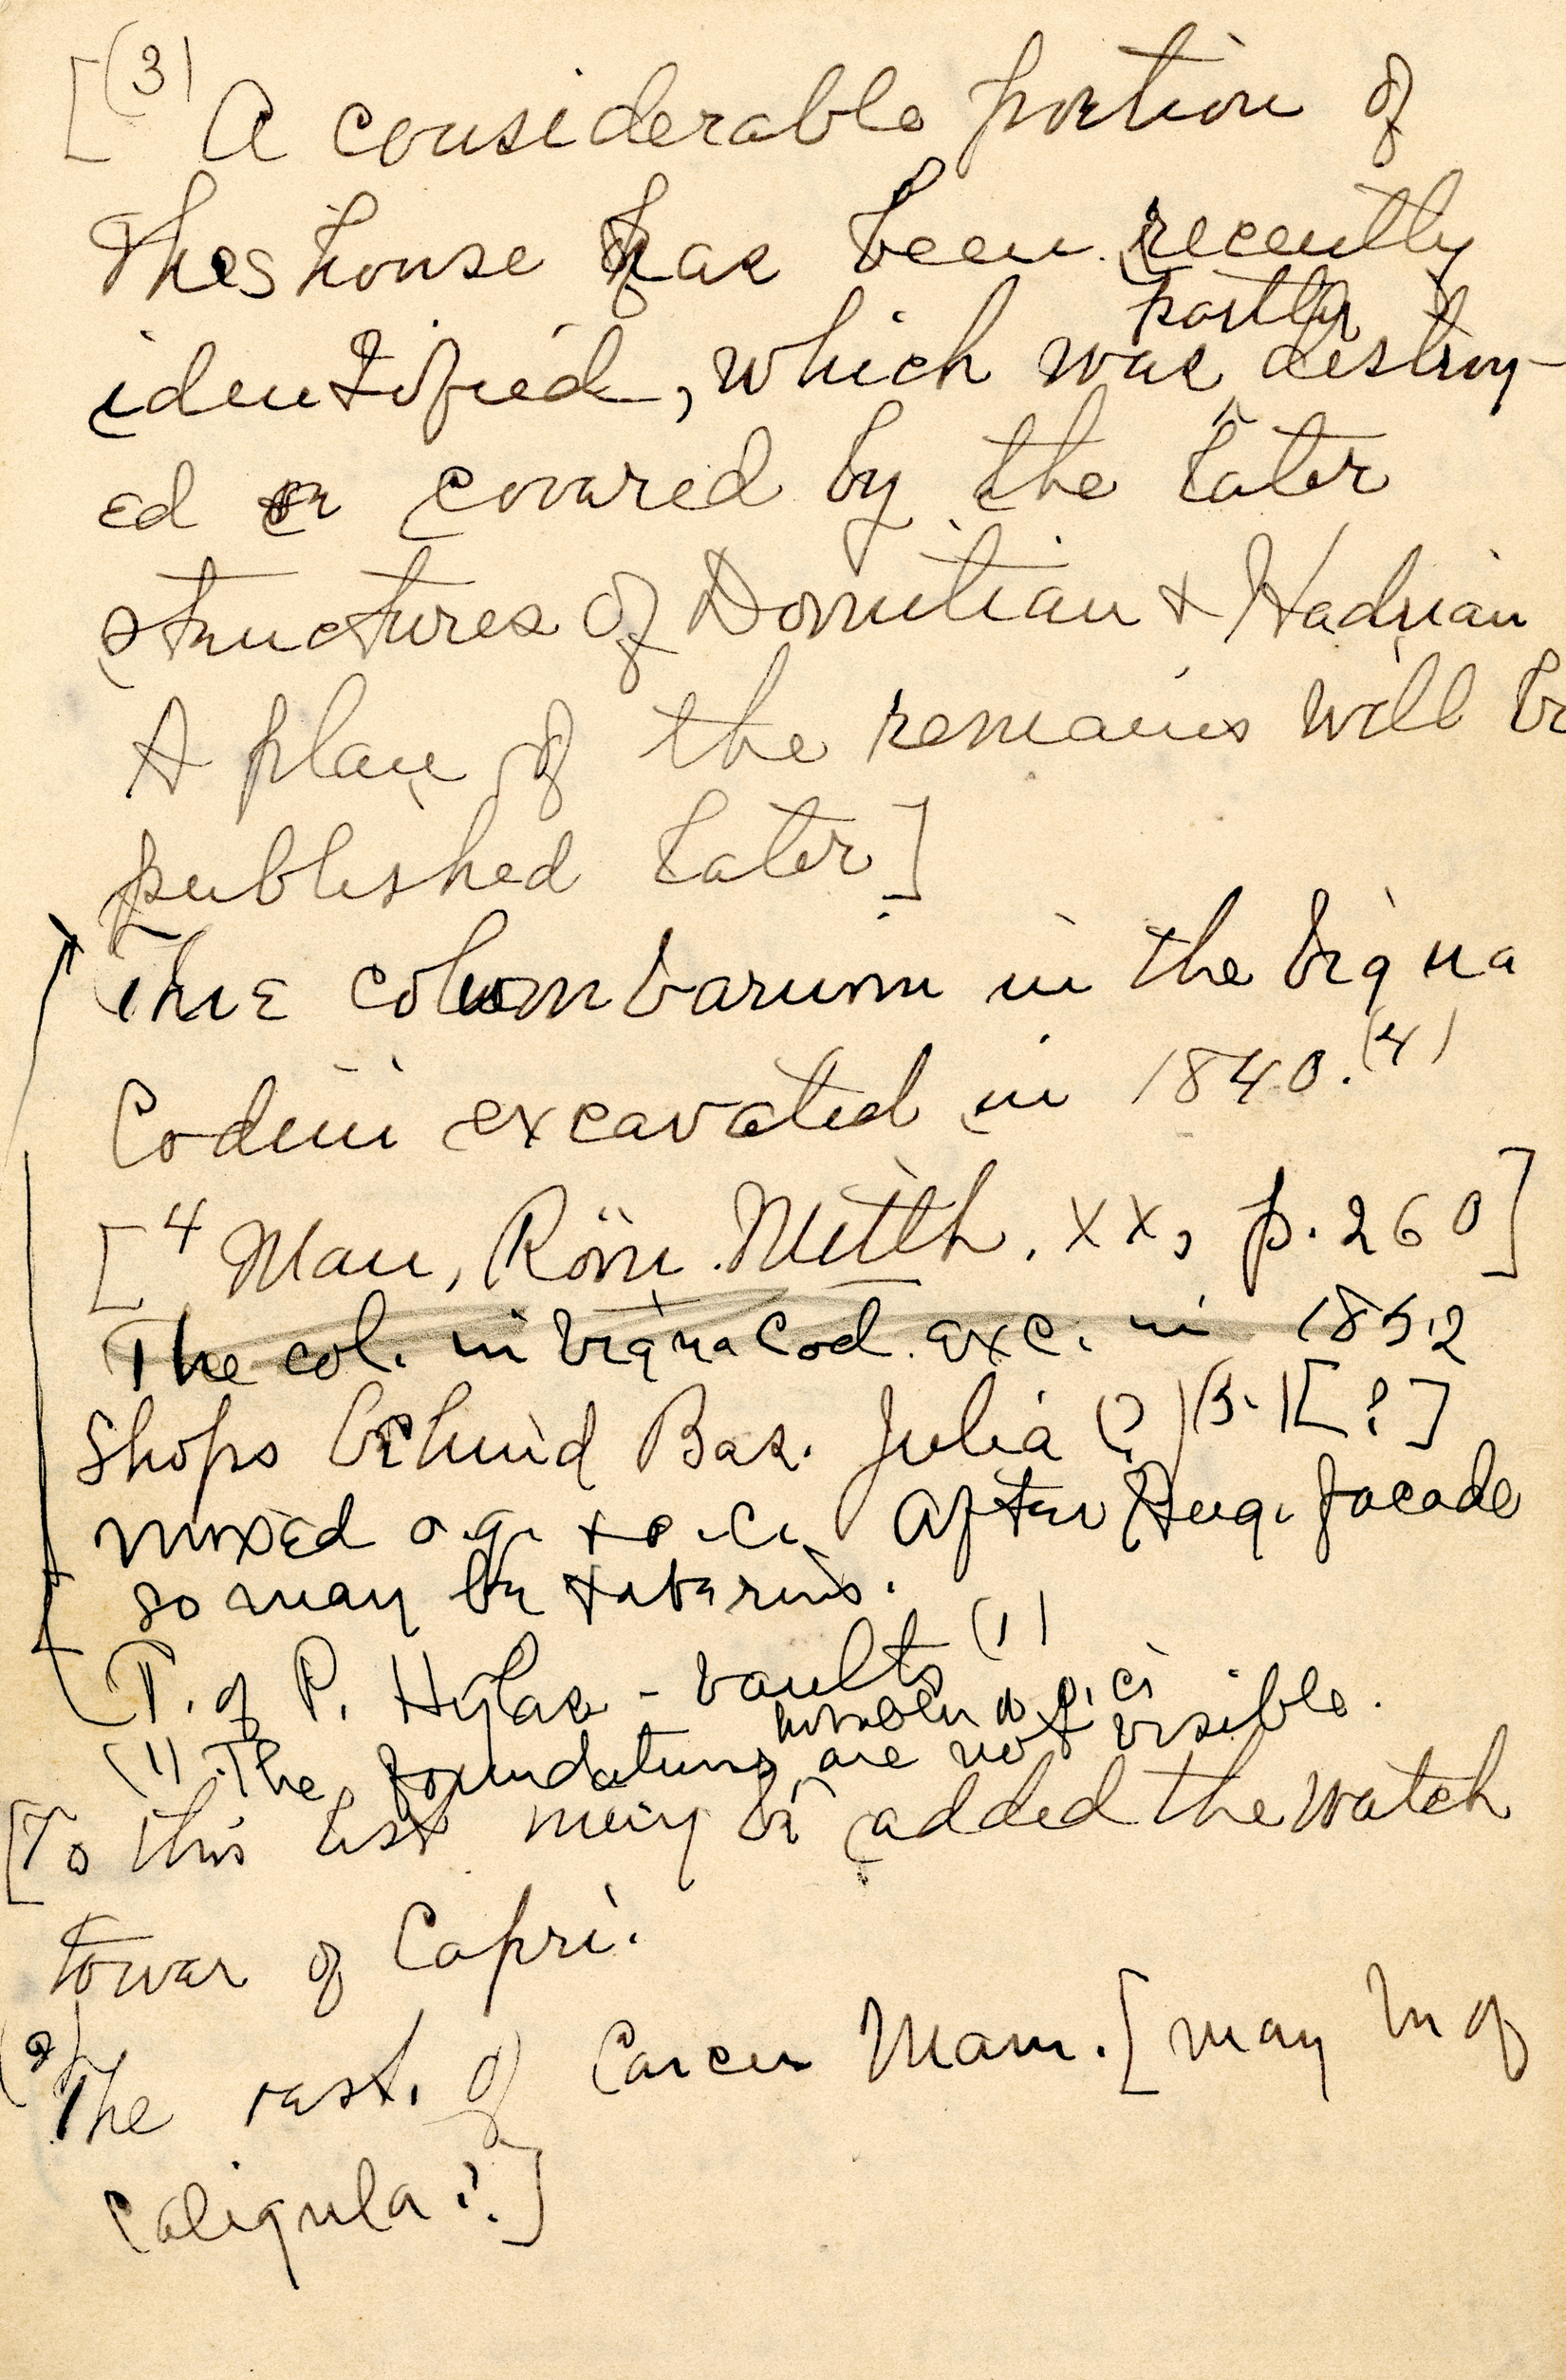 [(3) A considerable portion of
this house has been recently
partly
identified, which was destroy-
ed or covered by the later
structures of Domitian & Hadrian
A plan of the remains will be
published later]
The columbarium in the Vigna
Codini excavated in 1840.(4)
[4 Mau, Röm. Mitth. XX, p. 260]
The col. in Vigna Cod. exc. in 1852
Shops behind Bas. Julia (?)(5.)[?]
mixed o.g. & o.c. After Aug. facade
so may be Tiberius.
T. of P. Hylas - vaults (1)
(1) The foundations are not visible.
[To this list may be added the watch
tower of Capri.
(2) The rest. of Carcer Mam. [may be of
Caligula?]